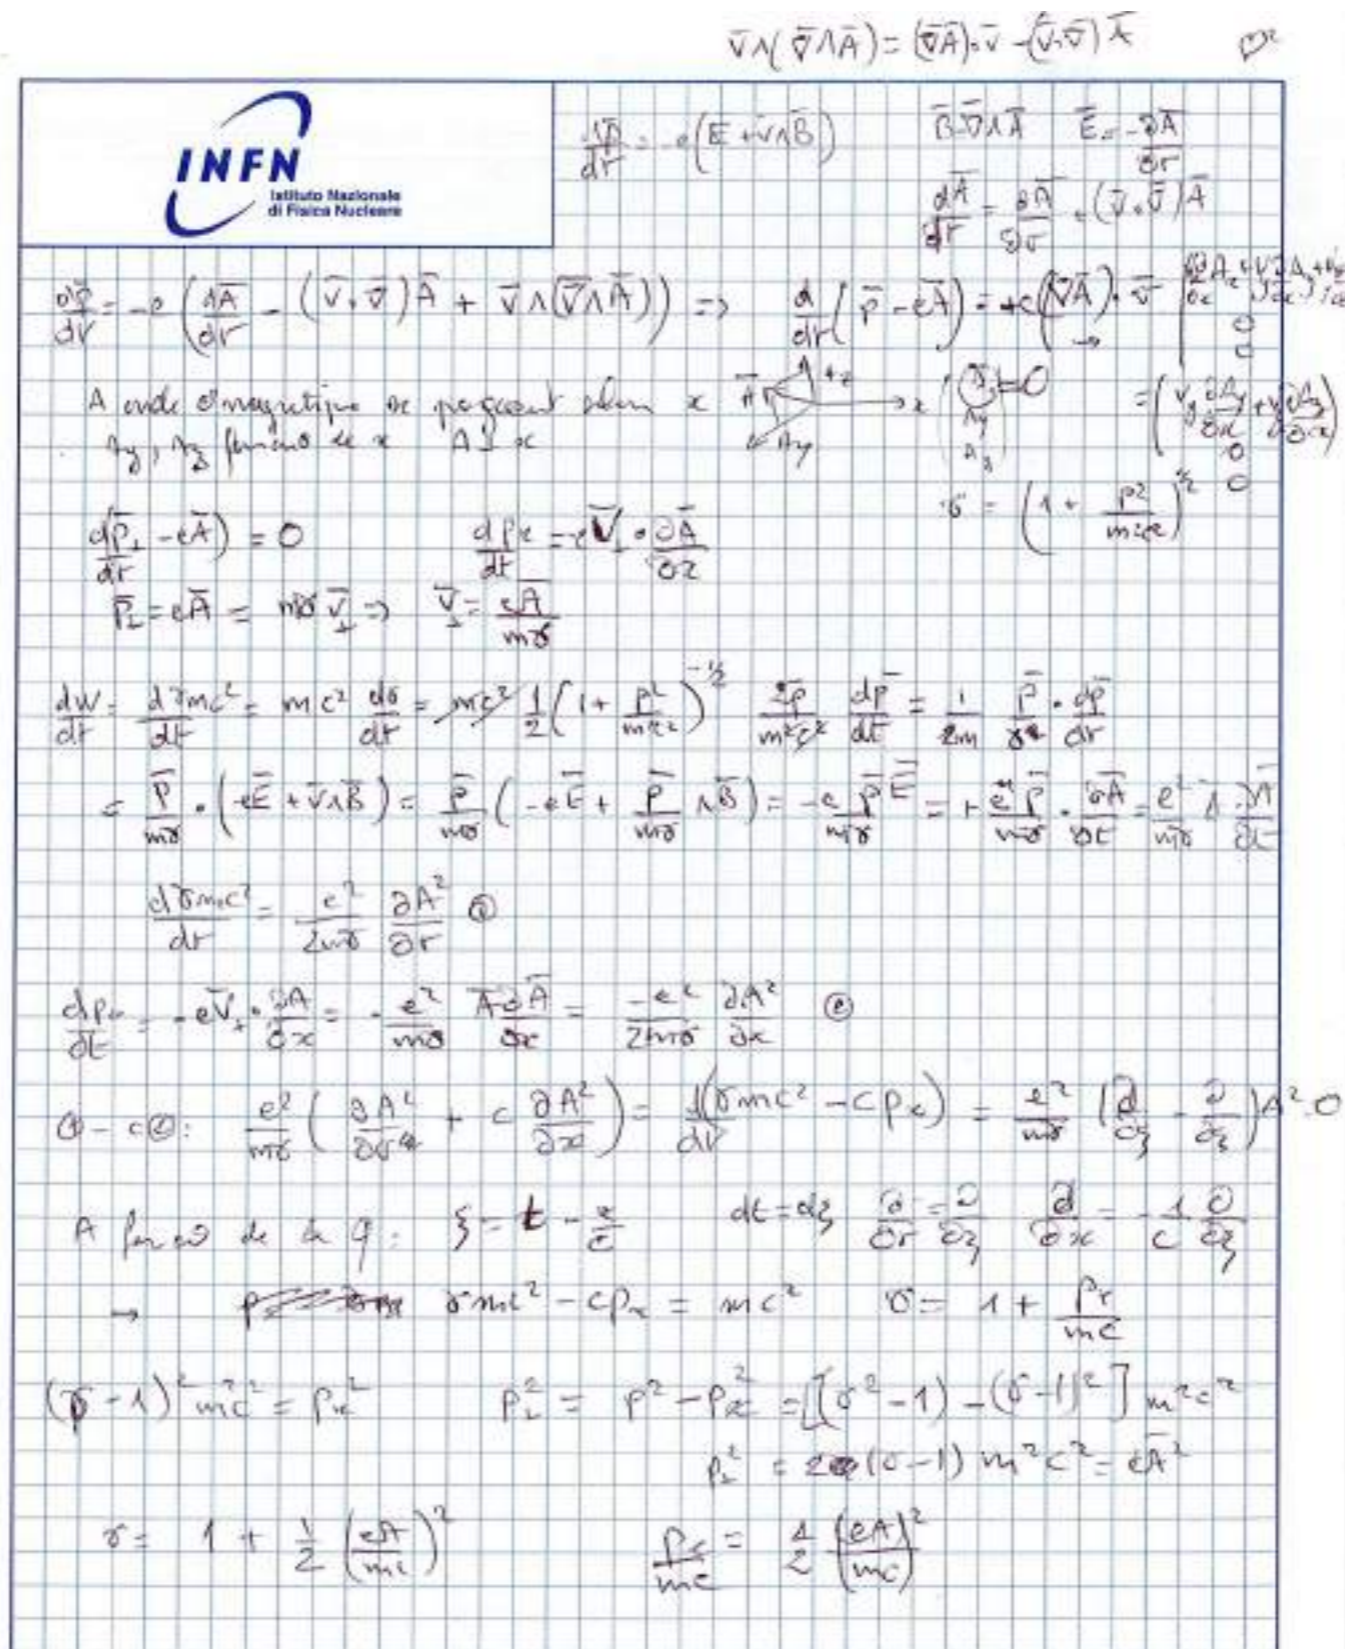 v̄∧(∇̄∧Ā) = (∇̄Ā)·v̄ - (v̄·∇̄)Ā
INFN
Istituto Nazionale
di Fisica Nucleare
dp̄/dt = -e(Ē + v̄∧B̄)
B̄ = ∇̄∧Ā Ē = -∂Ā/∂t
dĀ/dt = ∂Ā/∂t + (v̄·∇̄)Ā
dp̄/dt = -e(dĀ/dt - (v̄·∇̄)Ā + v̄∧(∇̄∧Ā)) => d/dt(p̄ - eĀ) = +e(∇̄Ā)·v̄
A onde se x
Ay, Az de x A ⊥ x
Ā Ay z x
= (vy ∂Ay/∂x + vz ∂Az/∂x)
0
0
γ = (1 + p²/m²c²)^½
d(p̄⊥ - eĀ)/dt = 0 dpx/dt = -e v̄⊥·∂Ā/∂x
p̄⊥ = eĀ = mγ v̄⊥ => v̄⊥ = eĀ/mγ
dW/dt = dγmc²/dt = mc² dγ/dt = mc² 1/2 (1 + p²/m²c²)^-½ 2p̄/m²c² dp̄/dt = 1/2m p̄/γ · dp̄/dt
= p̄/mγ · (-eĒ + v̄∧B̄) = p̄/mγ (-eĒ + p̄/mγ ∧B̄) = -e p̄Ē/mγ = + e p̄/mγ · ∂Ā/∂t = e²/mγ Ā ∂Ā/∂t
dγmc²/dt = e²/2mγ ∂A²/∂t ①
dpx/dt = -e v̄⊥·∂A/∂x = - e²/mγ Ā ∂Ā/∂x = -e²/2mγ ∂A²/∂x ②
① - c②: e²/mγ (∂A²/∂t + c ∂A²/∂x) = d(γmc² - cpx)/dt = e²/mγ (∂/∂ξ - ∂/∂ξ)A² = 0
A de la φ: ξ = t - x/c dt = dξ ∂/∂t = ∂/∂ξ ∂/∂x = -1/c ∂/∂ξ
→ γmc² - cpx = mc² γ = 1 + px/mc
(γ - 1)² m²c² = px² p⊥² = p² - px² = [(γ² - 1) - (γ - 1)²] m²c²
p⊥² = 2(γ - 1) m²c² = eĀ²
γ = 1 + 1/2 (eA/mc)² px/mc = 1/2 (eA/mc)²